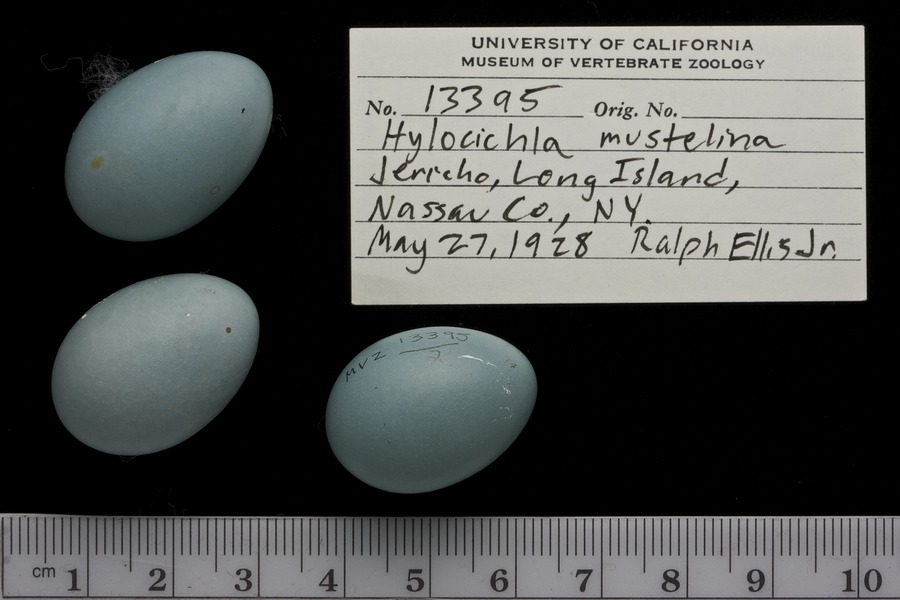 UNIVERSITY OF CALIFORNIA
MUSEUM OF VERTEBRATE ZOOLOGY
No. 13395 Orig. No.
Hylocichla mustelina
Jericho, Long Island,
Nassau Co., NY.
May 27, 1928 Ralph Ellis Jr.
MVZ 13395
2
cm 1 2 3 4 5 6 7 8 9 10